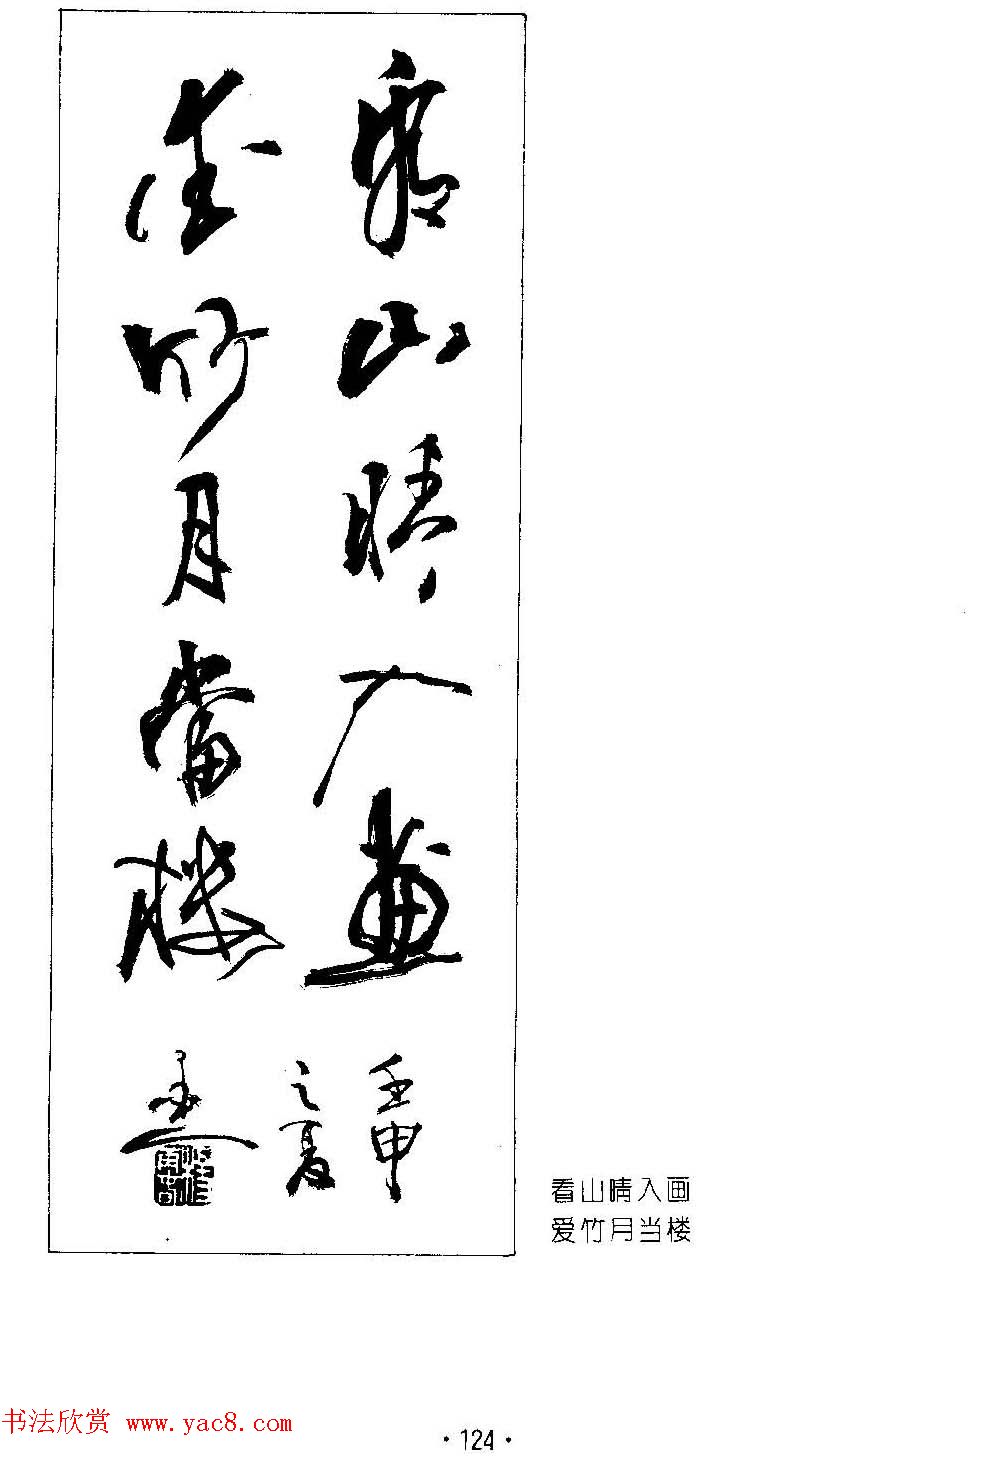 看山晴入畫
愛竹月當樓
壬申
之夏
看山晴入画
爱竹月当楼
书法欣赏 www.yac8.com
·124·